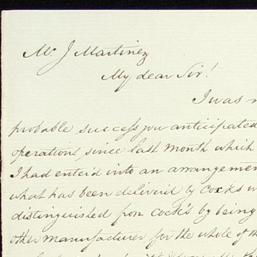 Mr J Martinez
My dear Sir!
I was
probable success you anticipated
operations since last month which
I had enter'd into an arrangemen
what has been deliver'd by Cocks w
distinguished from Cock's by being
other manufacturer for the whole of th